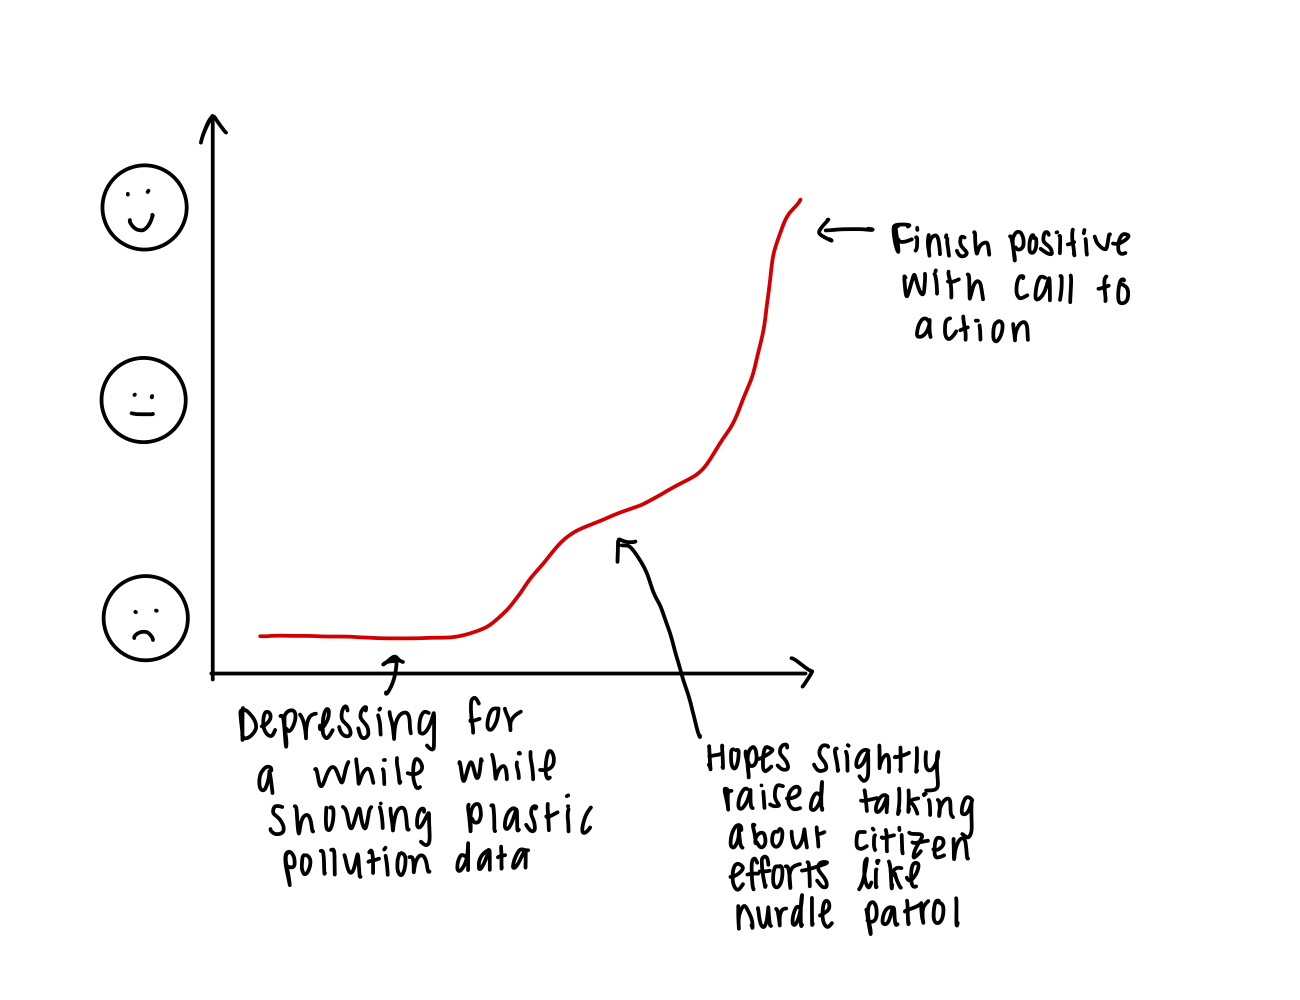 Finish positive
with call to
action
Depressing for
a while while
showing plastic
pollution data
Hopes slightly
raised talking
about citizen
efforts like
nurdle patrol